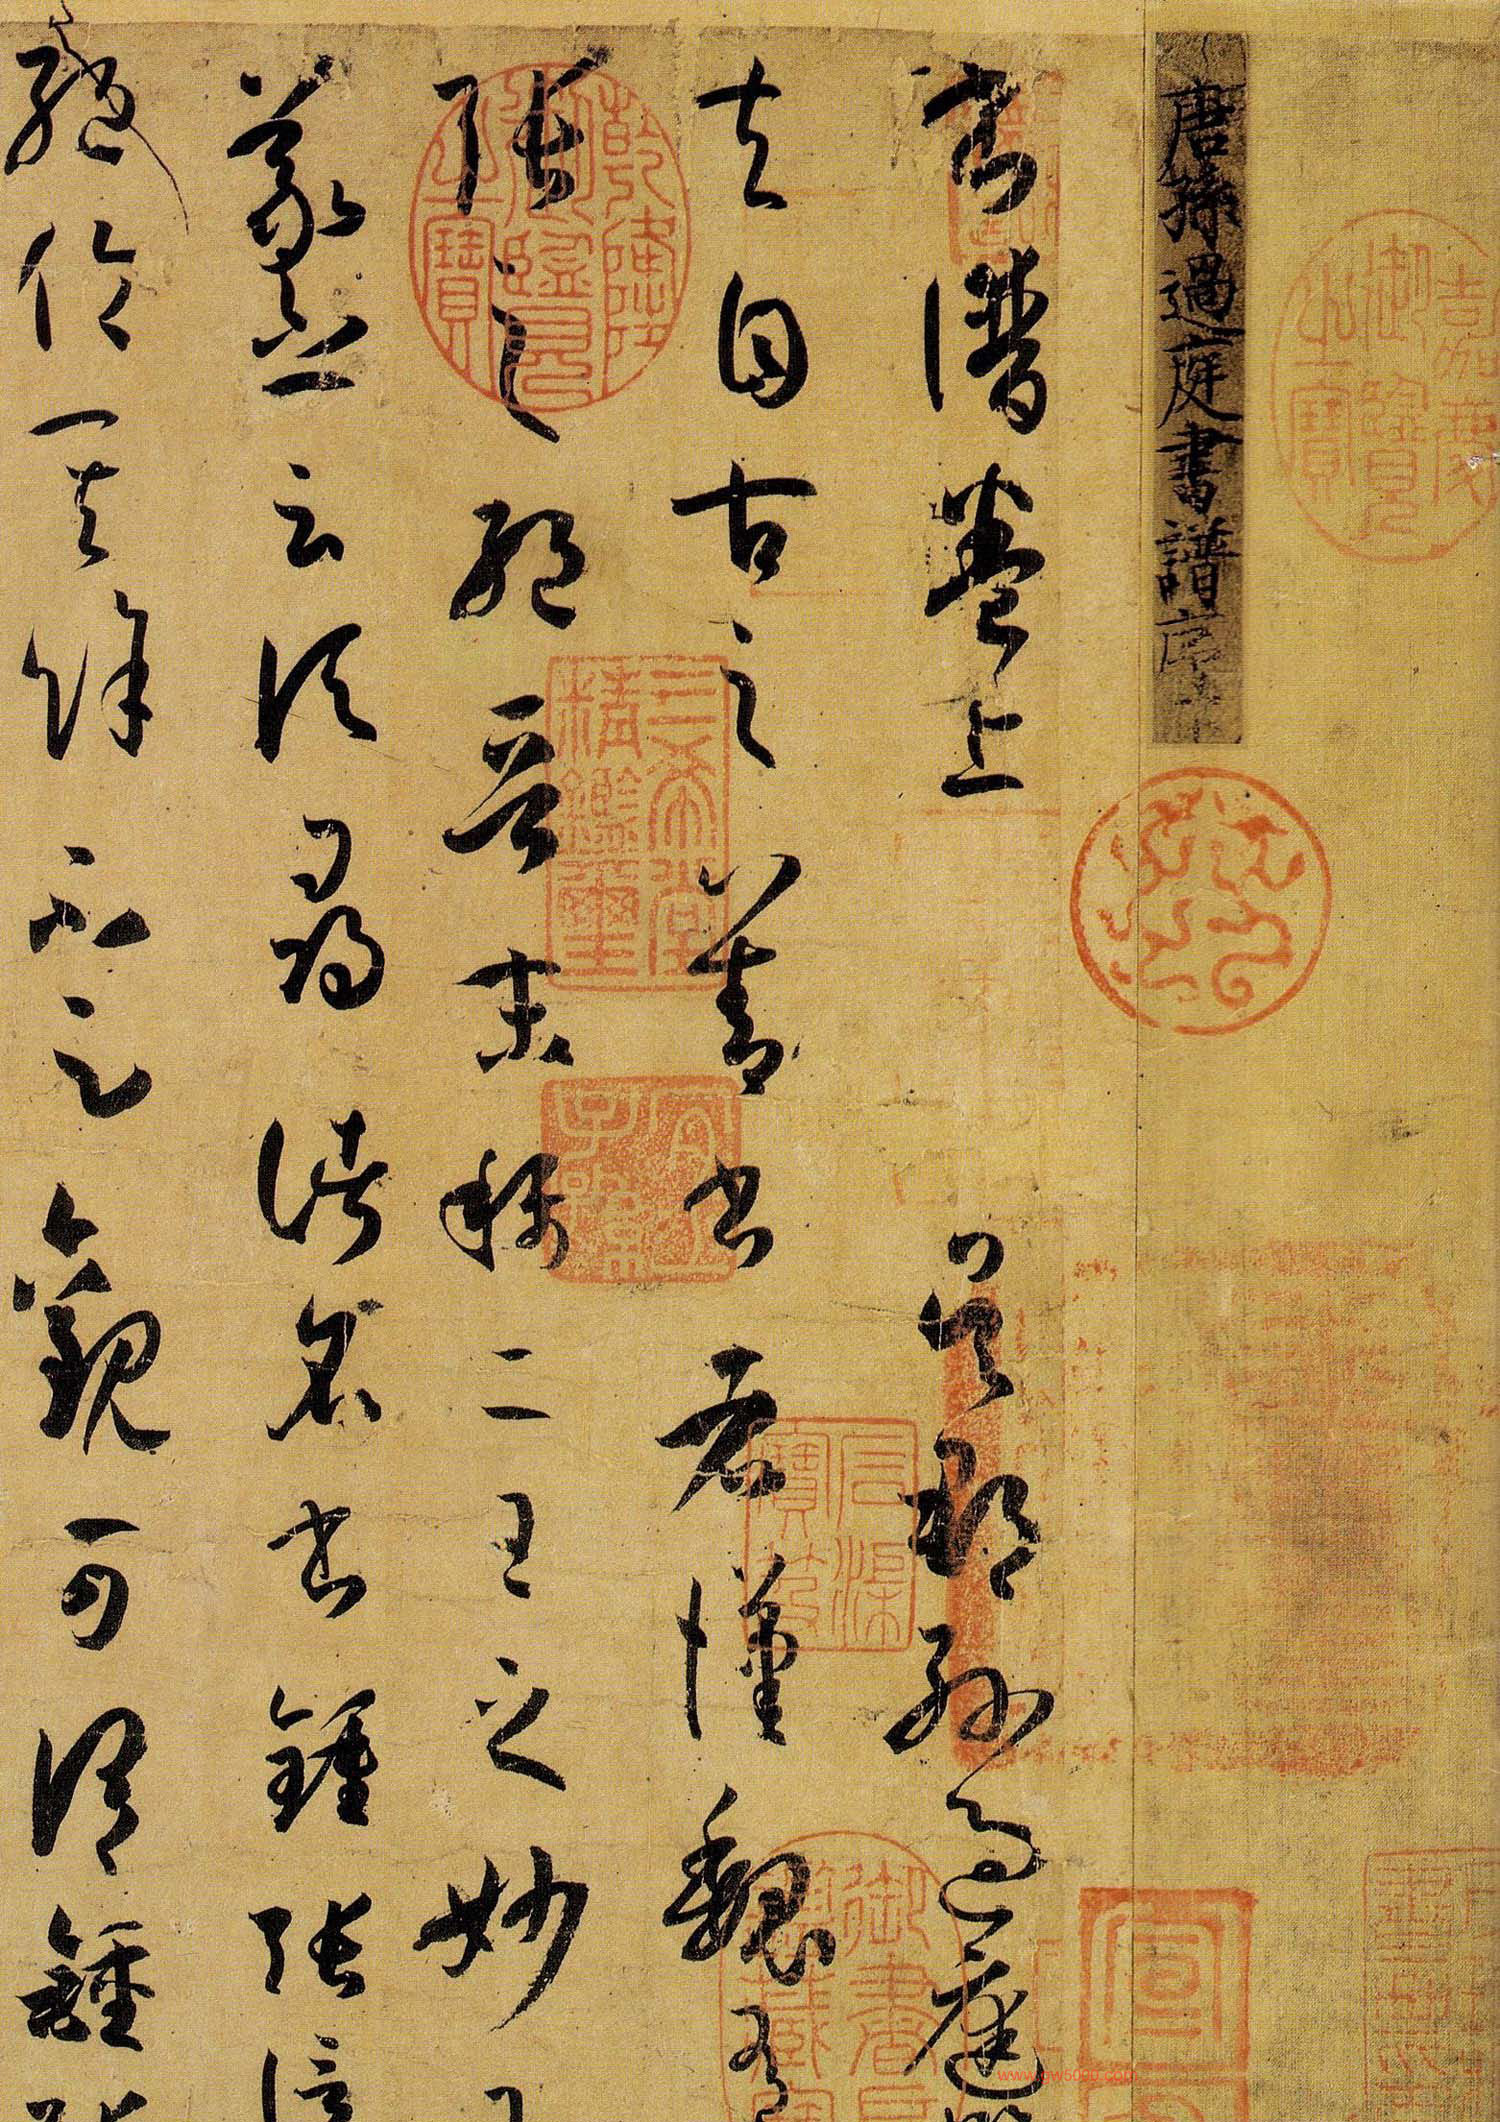 嘉慶御覽之寶
唐孫過庭書譜序
書譜卷上 吳郡孫過庭
夫自古之善書者漢魏有
乾隆御覽之寶
張之絕晉末稱二王之妙
三希堂精鑑璽
宜子孫
石渠寶笈
羲之云頃尋諸名書鍾張信
絕倫其餘不足觀可謂鍾